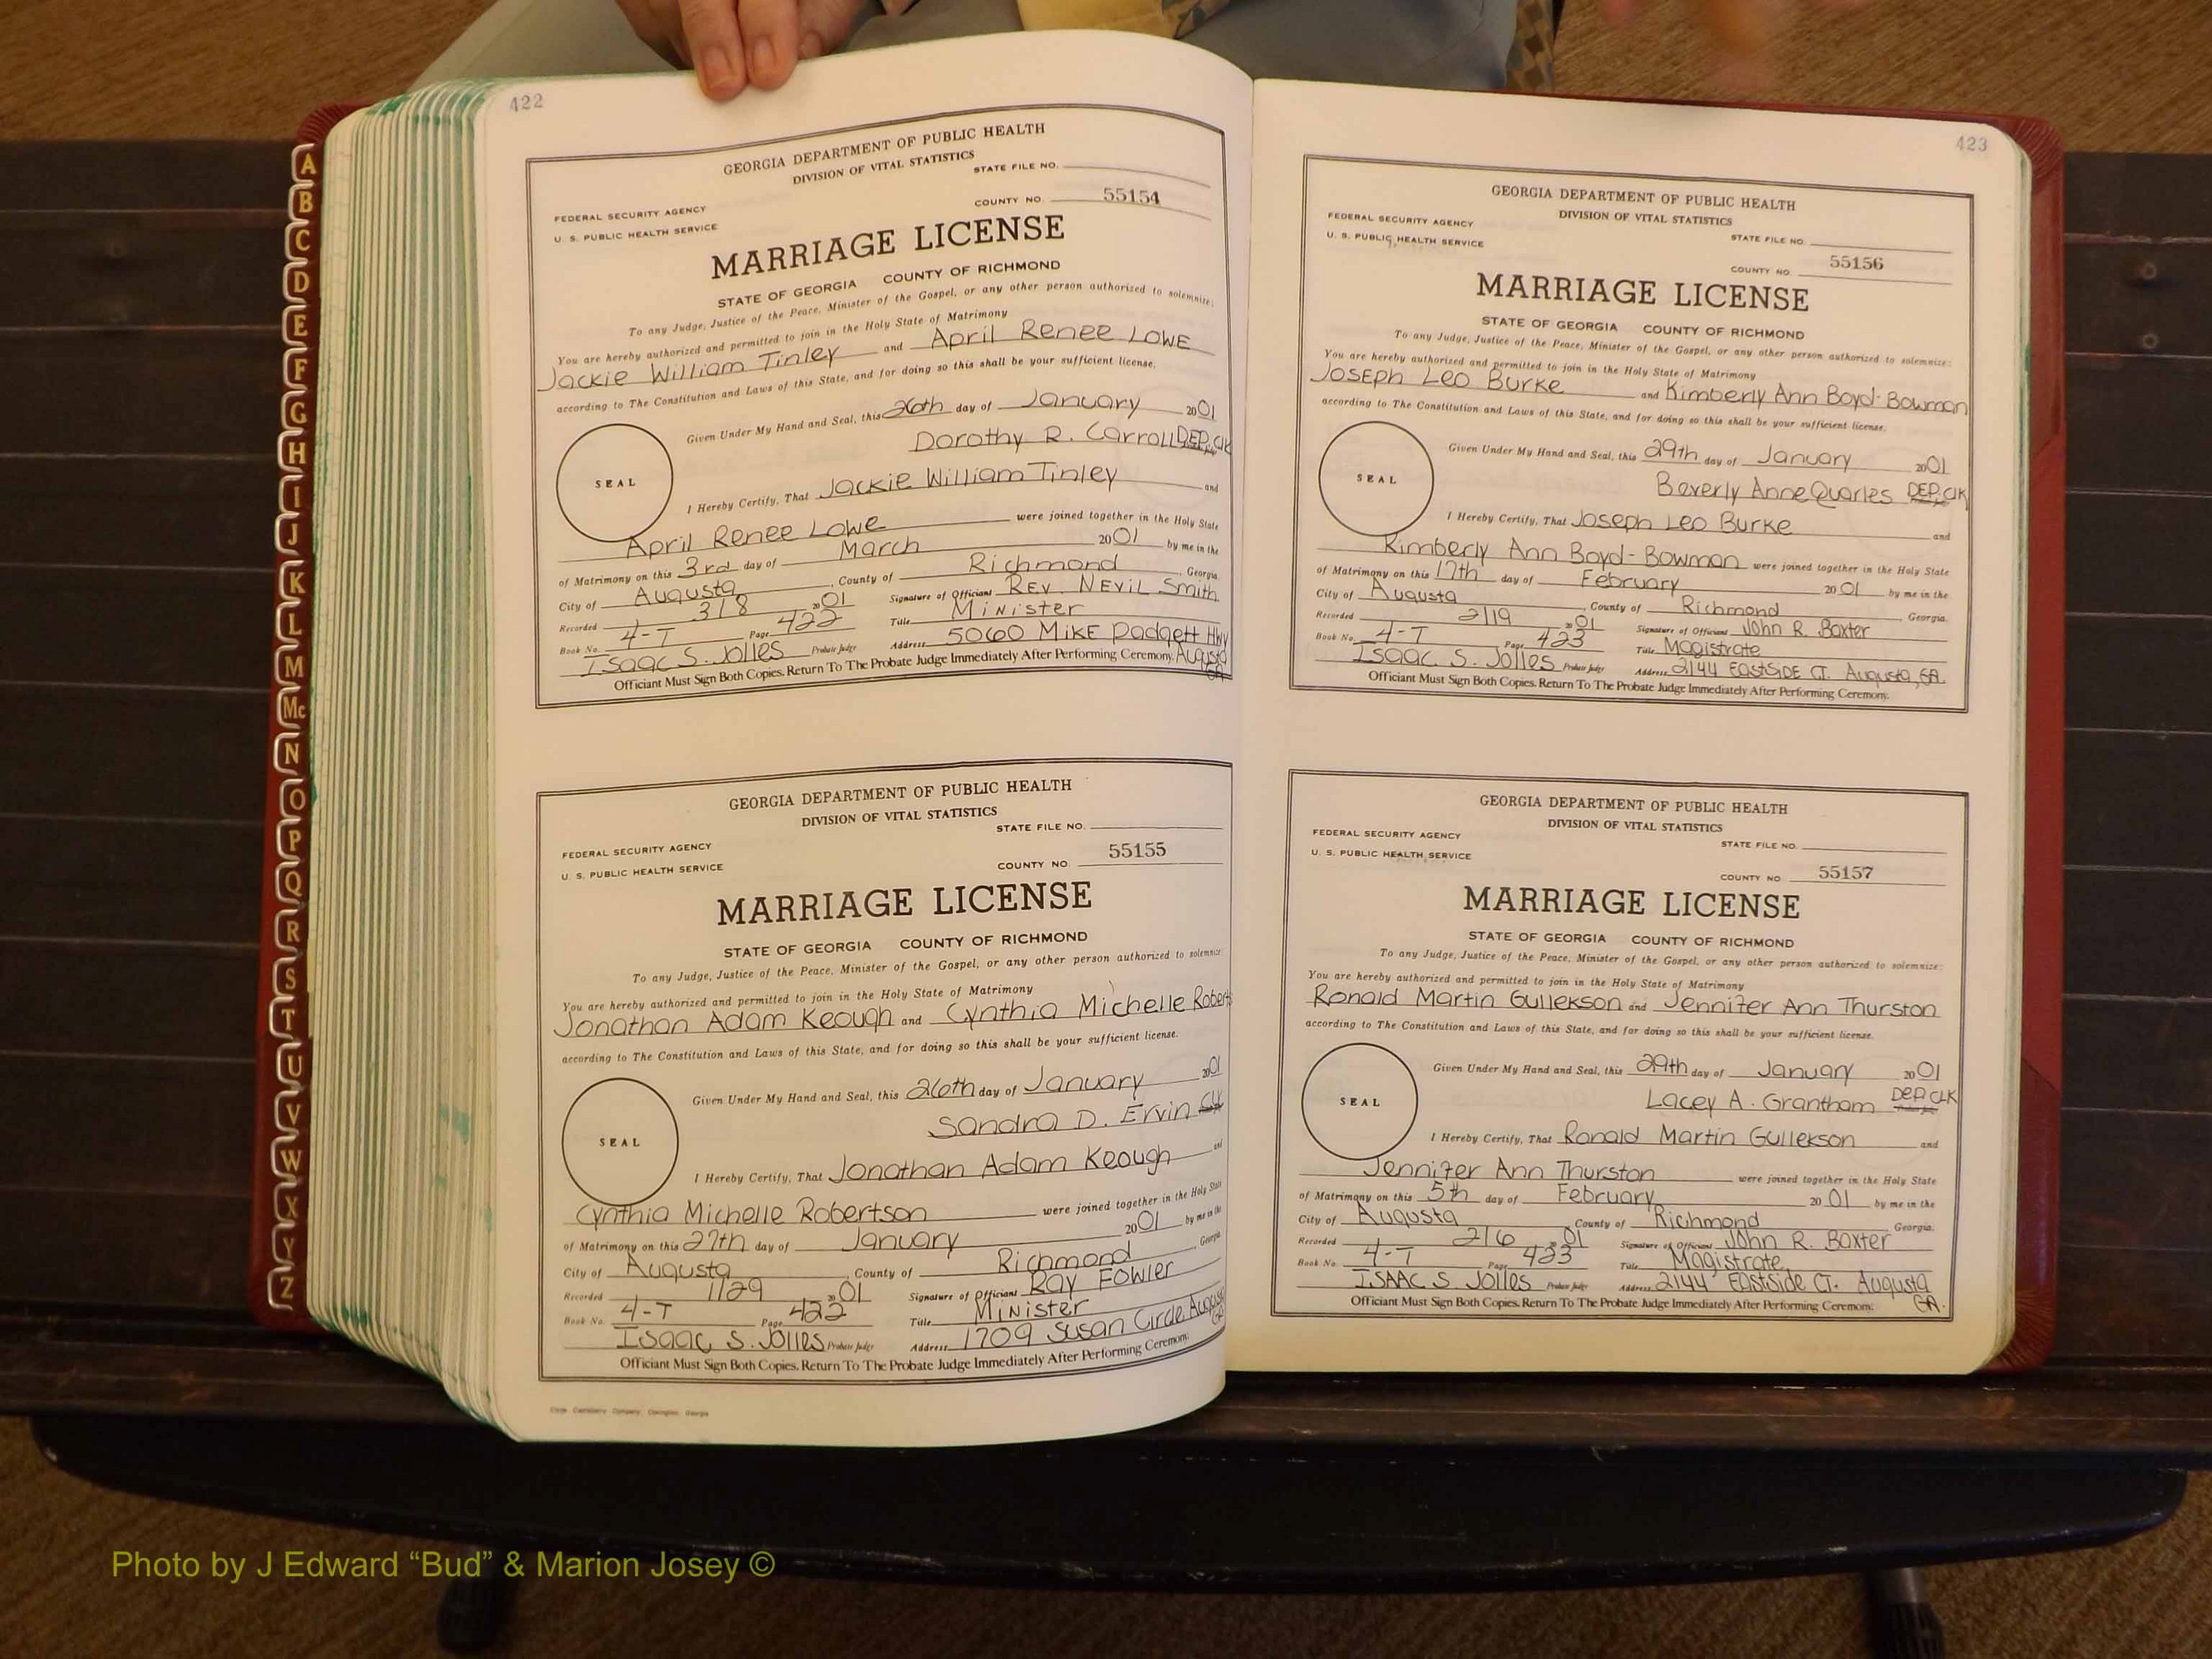 A
B
C
D
E
F
G
H
I
J
K
L
M
Mc
N
O
P
Q
R
S
T
U
V
W
X
Y
Z
422
GEORGIA DEPARTMENT OF PUBLIC HEALTH
DIVISION OF VITAL STATISTICS
STATE FILE NO.
FEDERAL SECURITY AGENCY
U. S. PUBLIC HEALTH SERVICE
COUNTY NO. 55154
MARRIAGE LICENSE
STATE OF GEORGIA COUNTY OF RICHMOND
To any Judge, Justice of the Peace, Minister of the Gospel, or any other person authorized to solemnize:
You are hereby authorized and permitted to join in the Holy State of Matrimony
Jackie William Tinley and April Renee Lowe
according to The Constitution and Laws of this State, and for doing so this shall be your sufficient license.
Given Under My Hand and Seal, this 26th day of January 2001
Dorothy R. Carroll DEP. Clk
SEAL
I Hereby Certify, That Jackie William Tinley and
April Renee Lowe were joined together in the Holy State
of Matrimony on this 3rd day of March 2001 by me in the
City of Augusta, County of Richmond, Georgia.
Recorded 3/8 2001 Signature of Officiant Rev. Nevil Smith
Book No. 4-T Page 422 Title Minister
Isaac S. Jolles Probate Judge Address 5060 Mike Padgett Hwy Augusta GA
Officiant Must Sign Both Copies. Return To The Probate Judge Immediately After Performing Ceremony.
GEORGIA DEPARTMENT OF PUBLIC HEALTH
DIVISION OF VITAL STATISTICS
STATE FILE NO.
FEDERAL SECURITY AGENCY
U. S. PUBLIC HEALTH SERVICE
COUNTY NO. 55155
MARRIAGE LICENSE
STATE OF GEORGIA COUNTY OF RICHMOND
To any Judge, Justice of the Peace, Minister of the Gospel, or any other person authorized to solemnize:
You are hereby authorized and permitted to join in the Holy State of Matrimony
Jonathan Adam Keough and Cynthia Michelle Roberts
according to The Constitution and Laws of this State, and for doing so this shall be your sufficient license.
Given Under My Hand and Seal, this 26th day of January 2001
Sandra D. Ervin Clk
SEAL
I Hereby Certify, That Jonathan Adam Keough and
Cynthia Michelle Robertson were joined together in the Holy State
of Matrimony on this 27th day of January 2001 by me in the
City of Augusta, County of Richmond, Georgia
Recorded 1/29 2001 Signature of Officiant Ray Fowler
Book No. 4-T Page 422 Title Minister
Isaac S. Jolles Probate Judge Address 1709 Susan Circle, Augusta GA
Officiant Must Sign Both Copies. Return To The Probate Judge Immediately After Performing Ceremony.
423
GEORGIA DEPARTMENT OF PUBLIC HEALTH
DIVISION OF VITAL STATISTICS
FEDERAL SECURITY AGENCY
U. S. PUBLIC HEALTH SERVICE
STATE FILE NO.
COUNTY NO. 55156
MARRIAGE LICENSE
STATE OF GEORGIA COUNTY OF RICHMOND
To any Judge, Justice of the Peace, Minister of the Gospel, or any other person authorized to solemnize:
You are hereby authorized and permitted to join in the Holy State of Matrimony
Joseph Leo Burke and Kimberly Ann Boyd-Bowman
according to The Constitution and Laws of this State, and for doing so this shall be your sufficient license.
Given Under My Hand and Seal, this 29th day of January 2001
Beverly Anne Quarles DEP. Clk
SEAL
I Hereby Certify, That Joseph Leo Burke and
Kimberly Ann Boyd-Bowman were joined together in the Holy State
of Matrimony on this 17th day of February 2001 by me in the
City of Augusta, County of Richmond Georgia.
Recorded 2/19 2001 Signature of Officiant John R. Baxter
Book No. 4-T Page 423 Title Magistrate
Isaac S. Jolles Probate Judge Address 2144 Eastside Ct. Augusta, GA.
Officiant Must Sign Both Copies. Return To The Probate Judge Immediately After Performing Ceremony.
GEORGIA DEPARTMENT OF PUBLIC HEALTH
DIVISION OF VITAL STATISTICS
FEDERAL SECURITY AGENCY
U. S. PUBLIC HEALTH SERVICE
STATE FILE NO.
COUNTY NO 55157
MARRIAGE LICENSE
STATE OF GEORGIA COUNTY OF RICHMOND
To any Judge, Justice of the Peace, Minister of the Gospel, or any other person authorized to solemnize:
You are hereby authorized and permitted to join in the Holy State of Matrimony
Ronald Martin Gullekson and Jennifer Ann Thurston
according to The Constitution and Laws of this State, and for doing so this shall be your sufficient license.
Given Under My Hand and Seal, this 29th day of January 2001
Lacey A. Grantham DEP. CLK
SEAL
I Hereby Certify, That Ronald Martin Gullekson and
Jennifer Ann Thurston were joined together in the Holy State
of Matrimony on this 5th day of February 2001 by me in the
City of Augusta, County of Richmond Georgia.
Recorded 2/6 2001 Signature of Officiant John R. Baxter
Book No. 4-T Page 423 Title Magistrate
Isaac S. Jolles Probate Judge Address 2144 Eastside Ct. Augusta GA.
Officiant Must Sign Both Copies. Return To The Probate Judge Immediately After Performing Ceremony.
Photo by J Edward “Bud” & Marion Josey ©